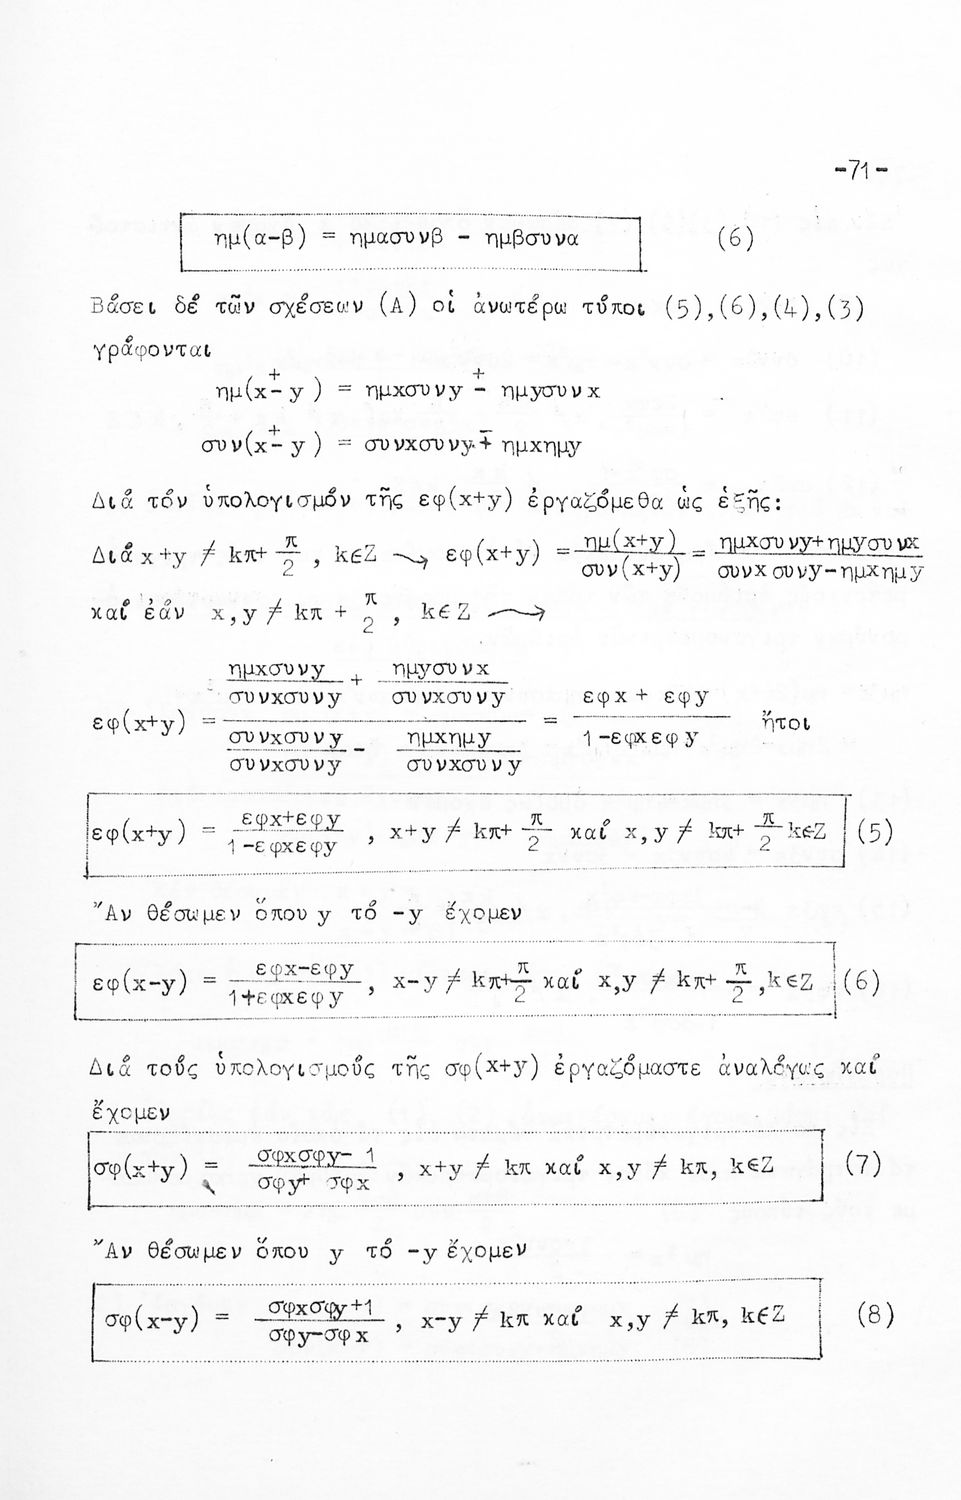 -71-
ημ(α-β) = ημασυνβ - ημβσυνα (6)
Βάσει δέ τῶν σχέσεων (Α) οἱ ἀνωτέρω τύποι (5),(6),(4),(3)
γράφονται
ημ(x ± y ) = ημxσυνy ± ημyσυνx
συν(x ± y ) = συνxσυνy ∓ ημxημy
Διά τόν ὑπολογισμόν τῆς εφ(x+y) ἐργαζόμεθα ὡς ἑξῆς:
Διά x+y ≠ kπ+ π/2 , k∈Z ⟶ εφ(x+y) = ημ(x+y)/συν(x+y) = (ημxσυνy+ημyσυνx)/(συνxσυνy-ημxημy)
καί ἐάν x,y ≠ kπ + π/2 , k∈Z ⟶
εφ(x+y) = (ημxσυνy/συνxσυνy + ημyσυνx/συνxσυνy)/(συνxσυνy/συνxσυνy - ημxημy/συνxσυνy) = (εφx + εφy)/(1-εφxεφy) ἤτοι
εφ(x+y) = (εφx+εφy)/(1-εφxεφy) , x+y ≠ kπ+ π/2 καί x,y ≠ kπ+ π/2 k∈Z (5)
Ἄν θέσωμεν ὅπου y τό -y ἔχομεν
εφ(x-y) = (εφx-εφy)/(1+εφxεφy) , x-y ≠ kπ+ π/2 καί x,y ≠ kπ+ π/2 ,k∈Z (6)
Διά τούς ὑπολογισμούς τῆς σφ(x+y) ἐργαζόμαστε ἀναλόγως καί
ἔχομεν
σφ(x+y) = (σφxσφy- 1)/(σφy+ σφx) , x+y ≠ kπ καί x,y ≠ kπ, k∈Z (7)
Ἄν θέσωμεν ὅπου y τό -y ἔχομεν
σφ(x-y) = (σφxσφy+1)/(σφy-σφx) , x-y ≠ kπ καί x,y ≠ kπ, k∈Z (8)